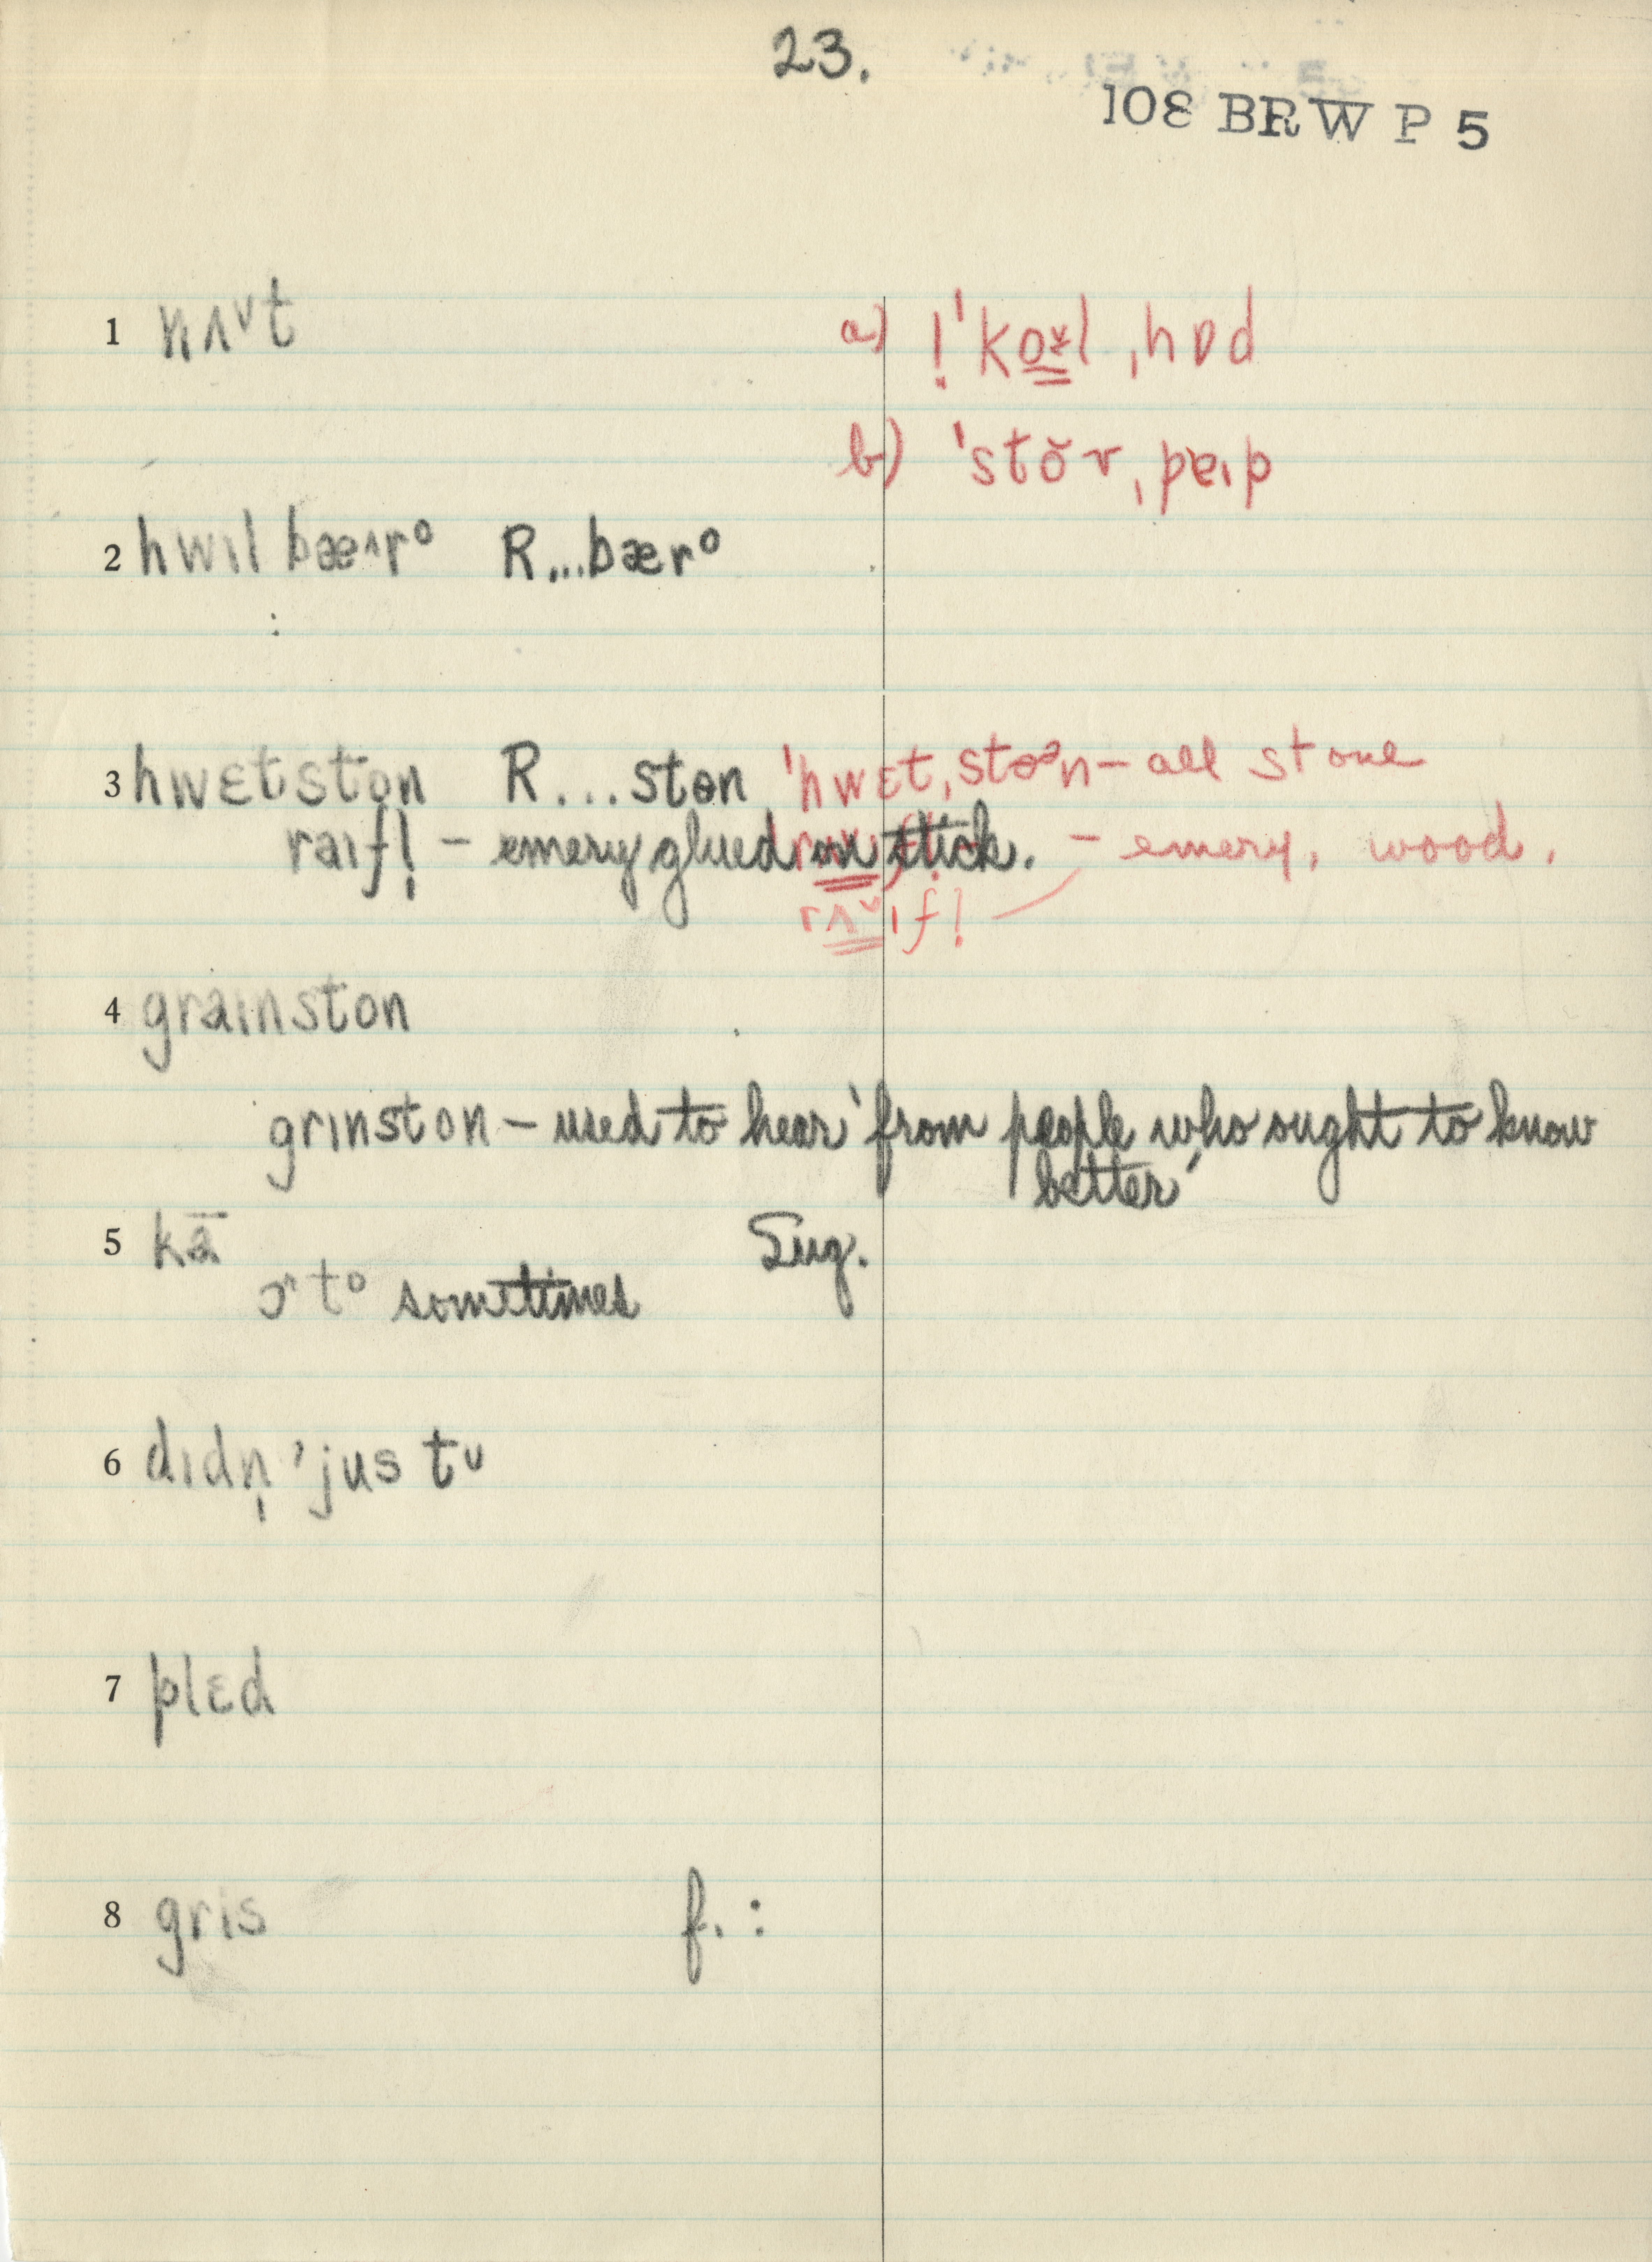 23.
108 BRW P 5
1 nʌᵛt a) !ˈkoʊ̬l ˌhɒd
b) ˈstŏr ˌpeɪp
2 hwɪl bæ^rᵒ R...bærᵒ
:
3 hwɛtston R...stɵn ˈhwɛtˌstɵᵊn – all stone
raɪfl̩ – emery glued on stick. – emery, wood.
rʌᵛɪfl̩
4 graɪnston
grɪnston – used to hear 'from people who ought to know
better'
5 kā Sug.
ɔ^tᵒ sometimes
6 dɪdn̩ ˈjus tᴜ
7 plɛd
8 gris f. :